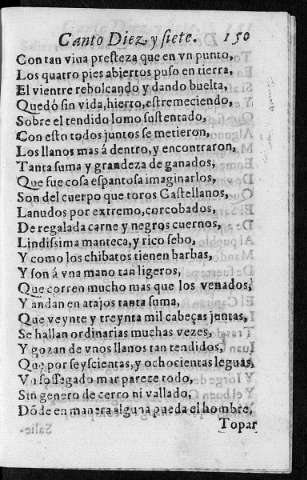 Canto Diez y siete. 150
Con tan viua presteza que en vn punto,
Los quatro pies abiertos puso en tierra,
El vientre rebolcando y dando buelta,
Quedó sin vida, hierto, estremeciendo,
Sobre el tendido lomo sustentado,
Con esto todos juntos se metieron,
Los llanos mas á dentro, y encontraron,
Tanta suma y grandeza de ganados,
Que fue cosa espantosa imaginarlos,
Son del cuerpo que toros Castellanos,
Lanudos por extremo, corcobados,
De regalada carne y negros cuernos,
Lindissima manteca, y rico sebo,
Y como los chibatos tienen barbas,
Y son á vna mano tan ligeros,
Que corren mucho mas que los venados,
Y andan en atajos tanta suma,
Que veynte y treynta mil cabeças juntas,
Se hallan ordinarias muchas vezes,
Y gozan de vnos llanos tan tendidos,
Que por seyscientas, y ochocientas leguas,
Vn sossegado mar parece todo,
Sin genero de cerro ni vallado,
Dōde en manera alguna pueda el hombre,
Topar